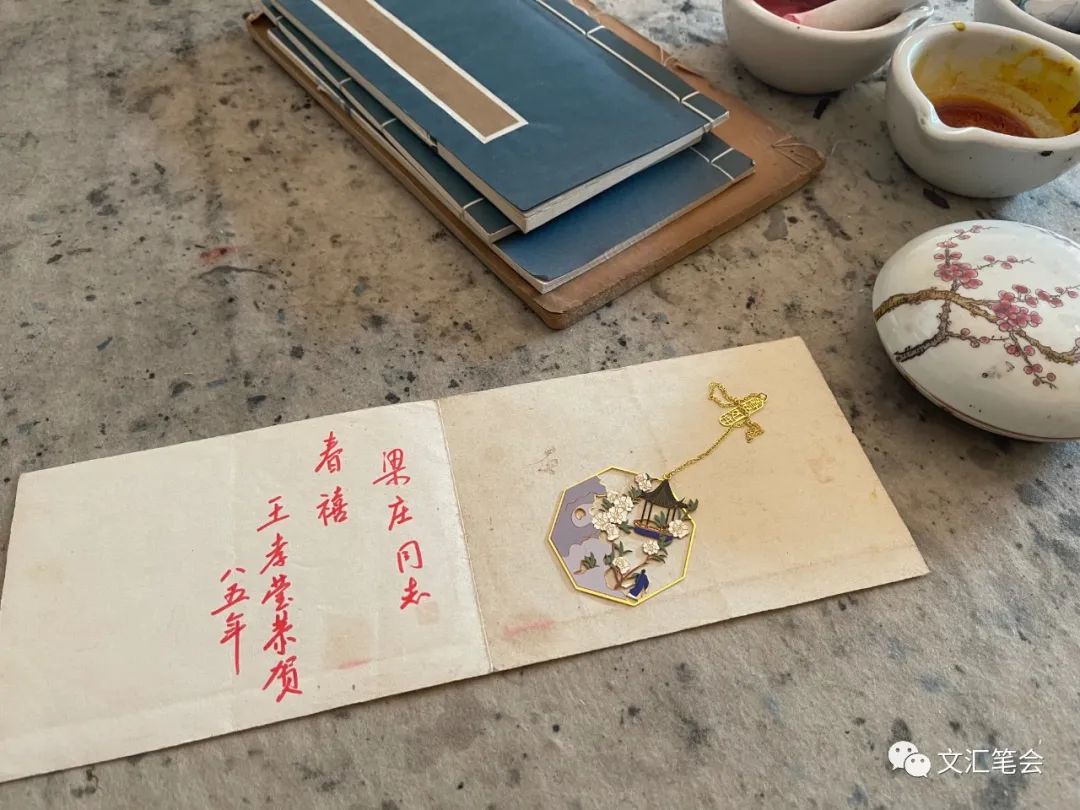 梁庄同志
春禧
王孝莹恭贺
八五年
文汇笔会